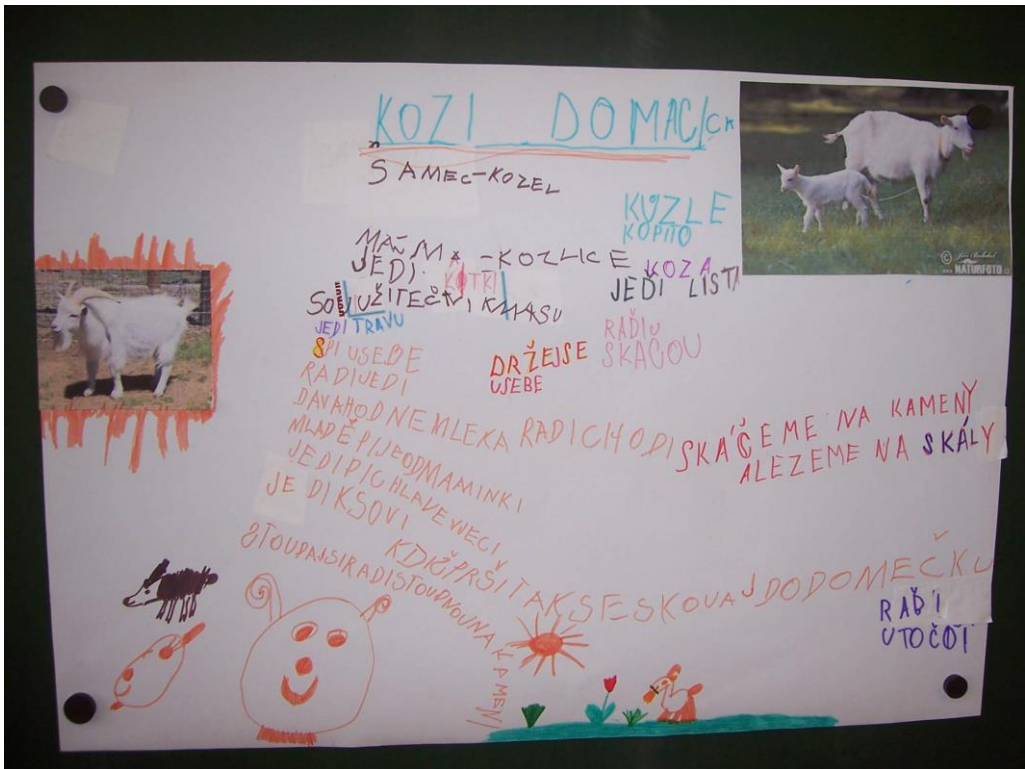 KOZI DOMAC/CK
SAMEC-KOZEL
KUZLE
KOPITO
MAŇMA-KOZLICE
JEDI KOTKI
KOZA
JEDI LISTI
SOU UŽITEČNI KMASU
JEDI TRAVU
SPI USEBE
RADIJEDI
DRŽEJSE
USEBE
RADIU
SKAČOU
DAVAHODNEMLEKA RADICHODI
SKÁČEME NA KAMENÝ
ALEZEME NA SKÁLY
MLADĚPIJEODMAMINKI
JEDIPICHLAVEVJECI
JEDIKSOVI
KDIŽPRŠITAKSESKOVAJDODOMEČKU
STOUPAJSIRADISTOUPNOUNAKAMENI
RADI
UTOČÓI
© Jiří Bohdal
www.NATURFOTO.cz